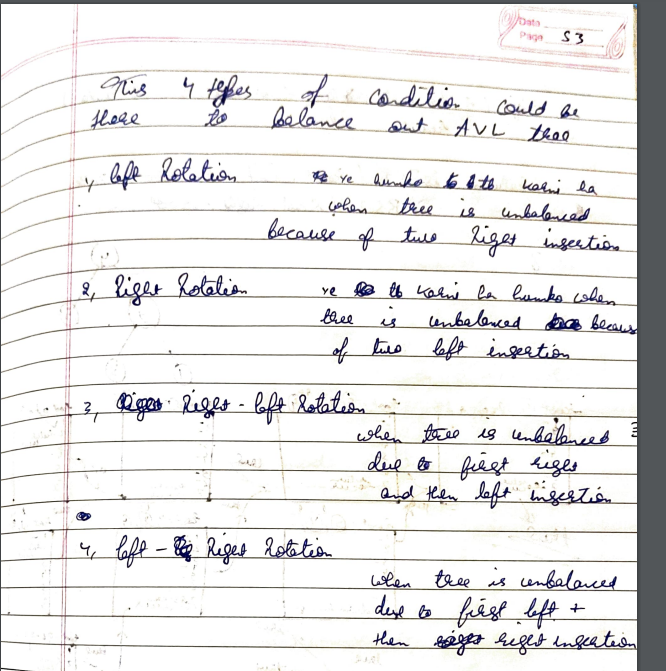 Date
Page 53
This 4 types of condition could be
there to balance out AVL tree
1, left Rotation ye humko tb karni ha
when tree is unbalanced
because of two Right insertion
2, Right Rotation ye tb karni ha humko when
tree is unbalanced becaus
of two left insertion
3, Right - left Rotation
when tree is unbalanced
due to first right
and then left insertion
4, left - Right Rotation
when tree is unbalanced
due to first left +
then right insertion